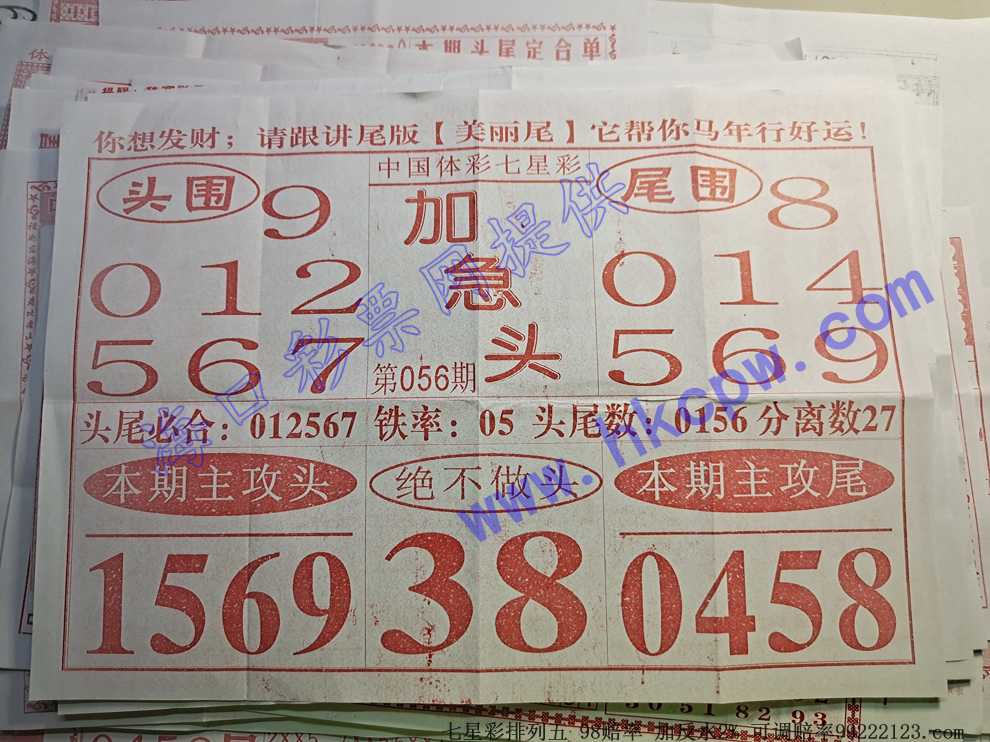 本期头尾定合单
你想发财；请跟讲尾版【美丽尾】它帮你马年行好运！
中国体彩七星彩
头围 9
012
567
加
急
头
第056期
尾围 8
014
569
头尾必合：012567 铁率：05 头尾数：0156 分离数27
本期主攻头
1569
绝不做头
38
本期主攻尾
0458
海口彩票网提供
www.hkcpw.com
七星彩排列五 98赔率 加反水2% 可调赔率99222123.com